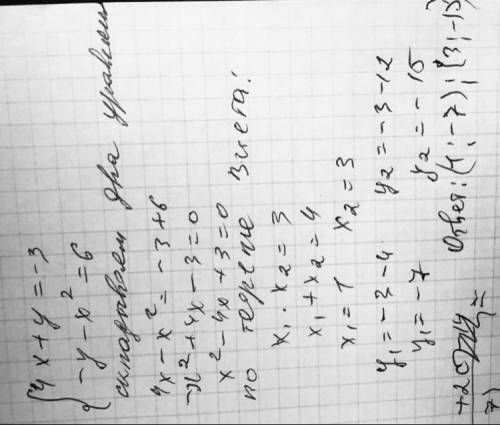 {4x+y=-3
{-y-x²=6
складываем два уравнен
4x-x²=-3+6
-x²+4x-3=0
x²-4x+3=0
по теореме Виета:
x₁·x₂=3
x₁+x₂=4
x₁=1 x₂=3
y₁=-3-4 y₂=-3-12
y₁=-7 y₂=-15
Ответ: (1;-7);(3;-15)
+2
7)